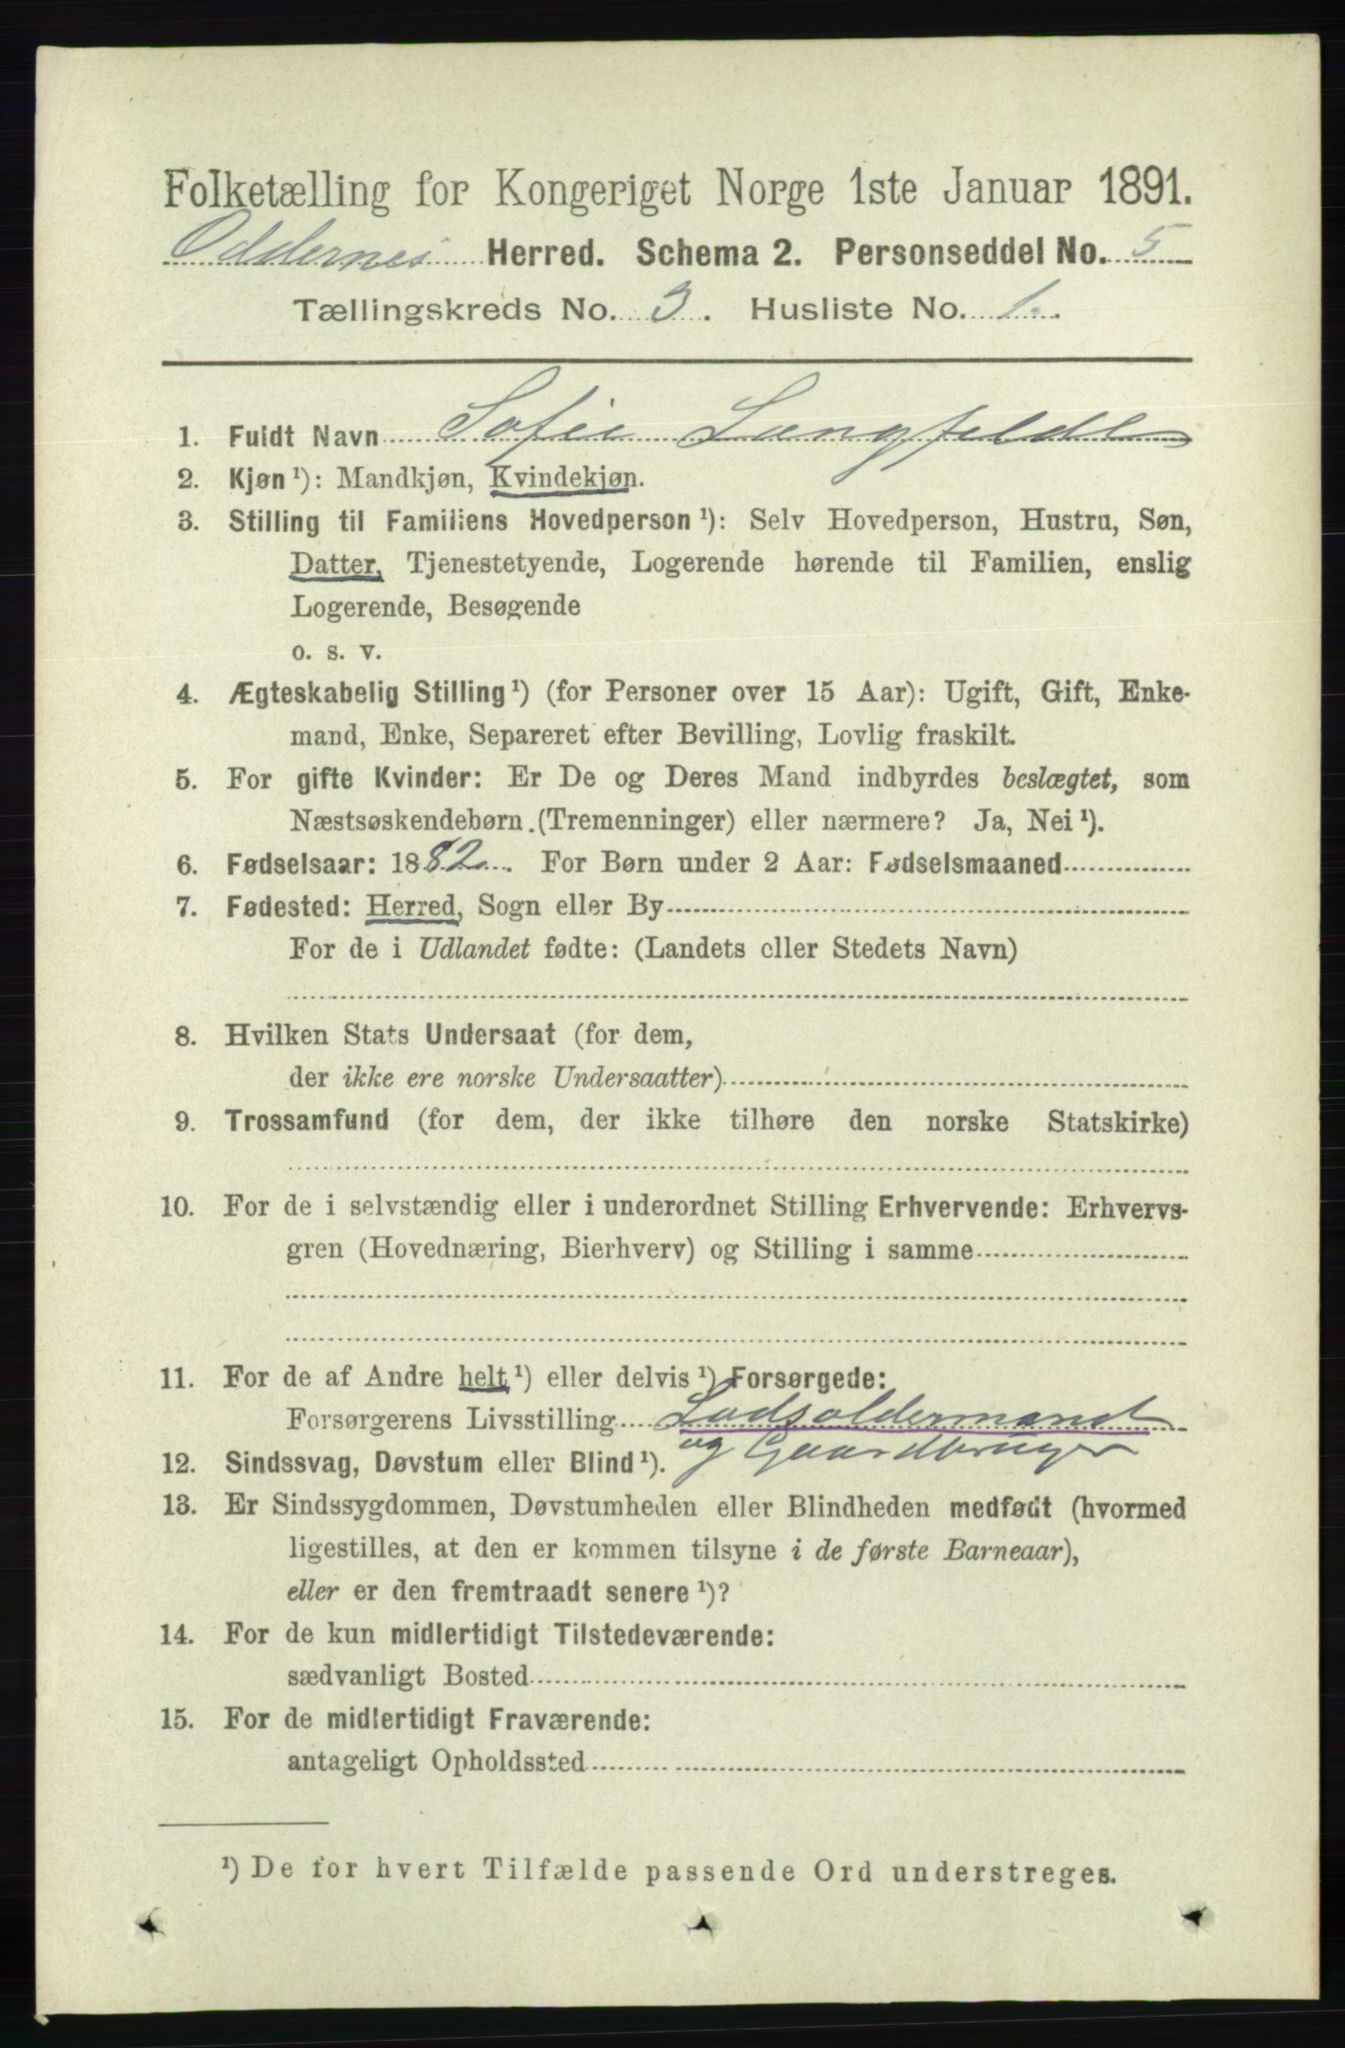 Folketælling for Kongeriget Norge 1ste Januar 1891.
Oddernes Herred. Schema 2. Personseddel No. 5
Tællingskreds No. 3. Husliste No. 1.
1. Fuldt Navn Sofie Langfeldt
2. Kjøn ¹): Mandkjøn, Kvindekjøn.
3. Stilling til Familiens Hovedperson ¹): Selv Hovedperson, Hustru, Søn,
Datter, Tjenestetyende, Logerende hørende til Familien, enslig
Logerende, Besøgende
o. s. v.
4. Ægteskabelig Stilling ¹) (for Personer over 15 Aar): Ugift, Gift, Enke-
mand, Enke, Separeret efter Bevilling, Lovlig fraskilt.
5. For gifte Kvinder: Er De og Deres Mand indbyrdes beslægtet, som
Næstsøskendebørn (Tremenninger) eller nærmere? Ja, Nei ¹).
6. Fødselsaar: 1882. For Børn under 2 Aar: Fødselsmaaned
7. Fødested: Herred, Sogn eller By
For de i Udlandet fødte: (Landets eller Stedets Navn)
8. Hvilken Stats Undersaat (for dem,
der ikke ere norske Undersaatter)
9. Trossamfund (for dem, der ikke tilhøre den norske Statskirke)
10. For de i selvstændig eller i underordnet Stilling Erhvervende: Erhvervs-
gren (Hovednæring, Bierhverv) og Stilling i samme
11. For de af Andre helt ¹) eller delvis ¹) Forsørgede:
Forsørgerens Livsstilling Lodsoldermand
og Gaardbruger
12. Sindssvag, Døvstum eller Blind ¹).
13. Er Sindssygdommen, Døvstumheden eller Blindheden medfødt (hvormed
ligestilles, at den er kommen tilsyne i de første Barneaar),
eller er den fremtraadt senere ¹)?
14. For de kun midlertidigt Tilstedeværende:
sædvanligt Bosted
15. For de midlertidigt Fraværende:
antageligt Opholdssted
¹) De for hvert Tilfælde passende Ord understreges.